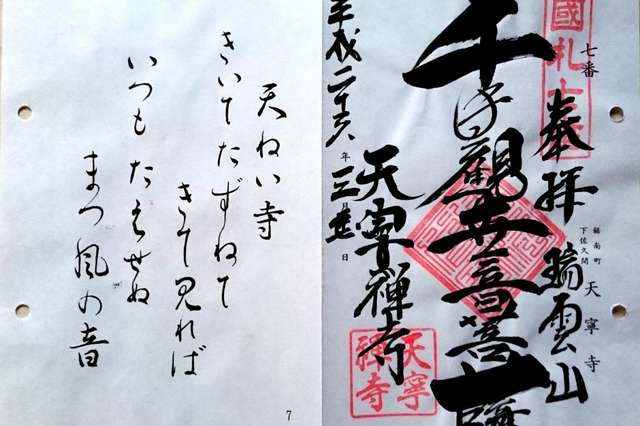 七番
鋸南町
下佐久間
天寧寺
國札
奉拝
瑞雲山
千手觀世音菩薩
平成二十六年三月日
天寧禅寺
天寧
禅寺
天ねい寺
きいてたずねて
きて見れば
いつもたえせぬ
まつ風の音
7